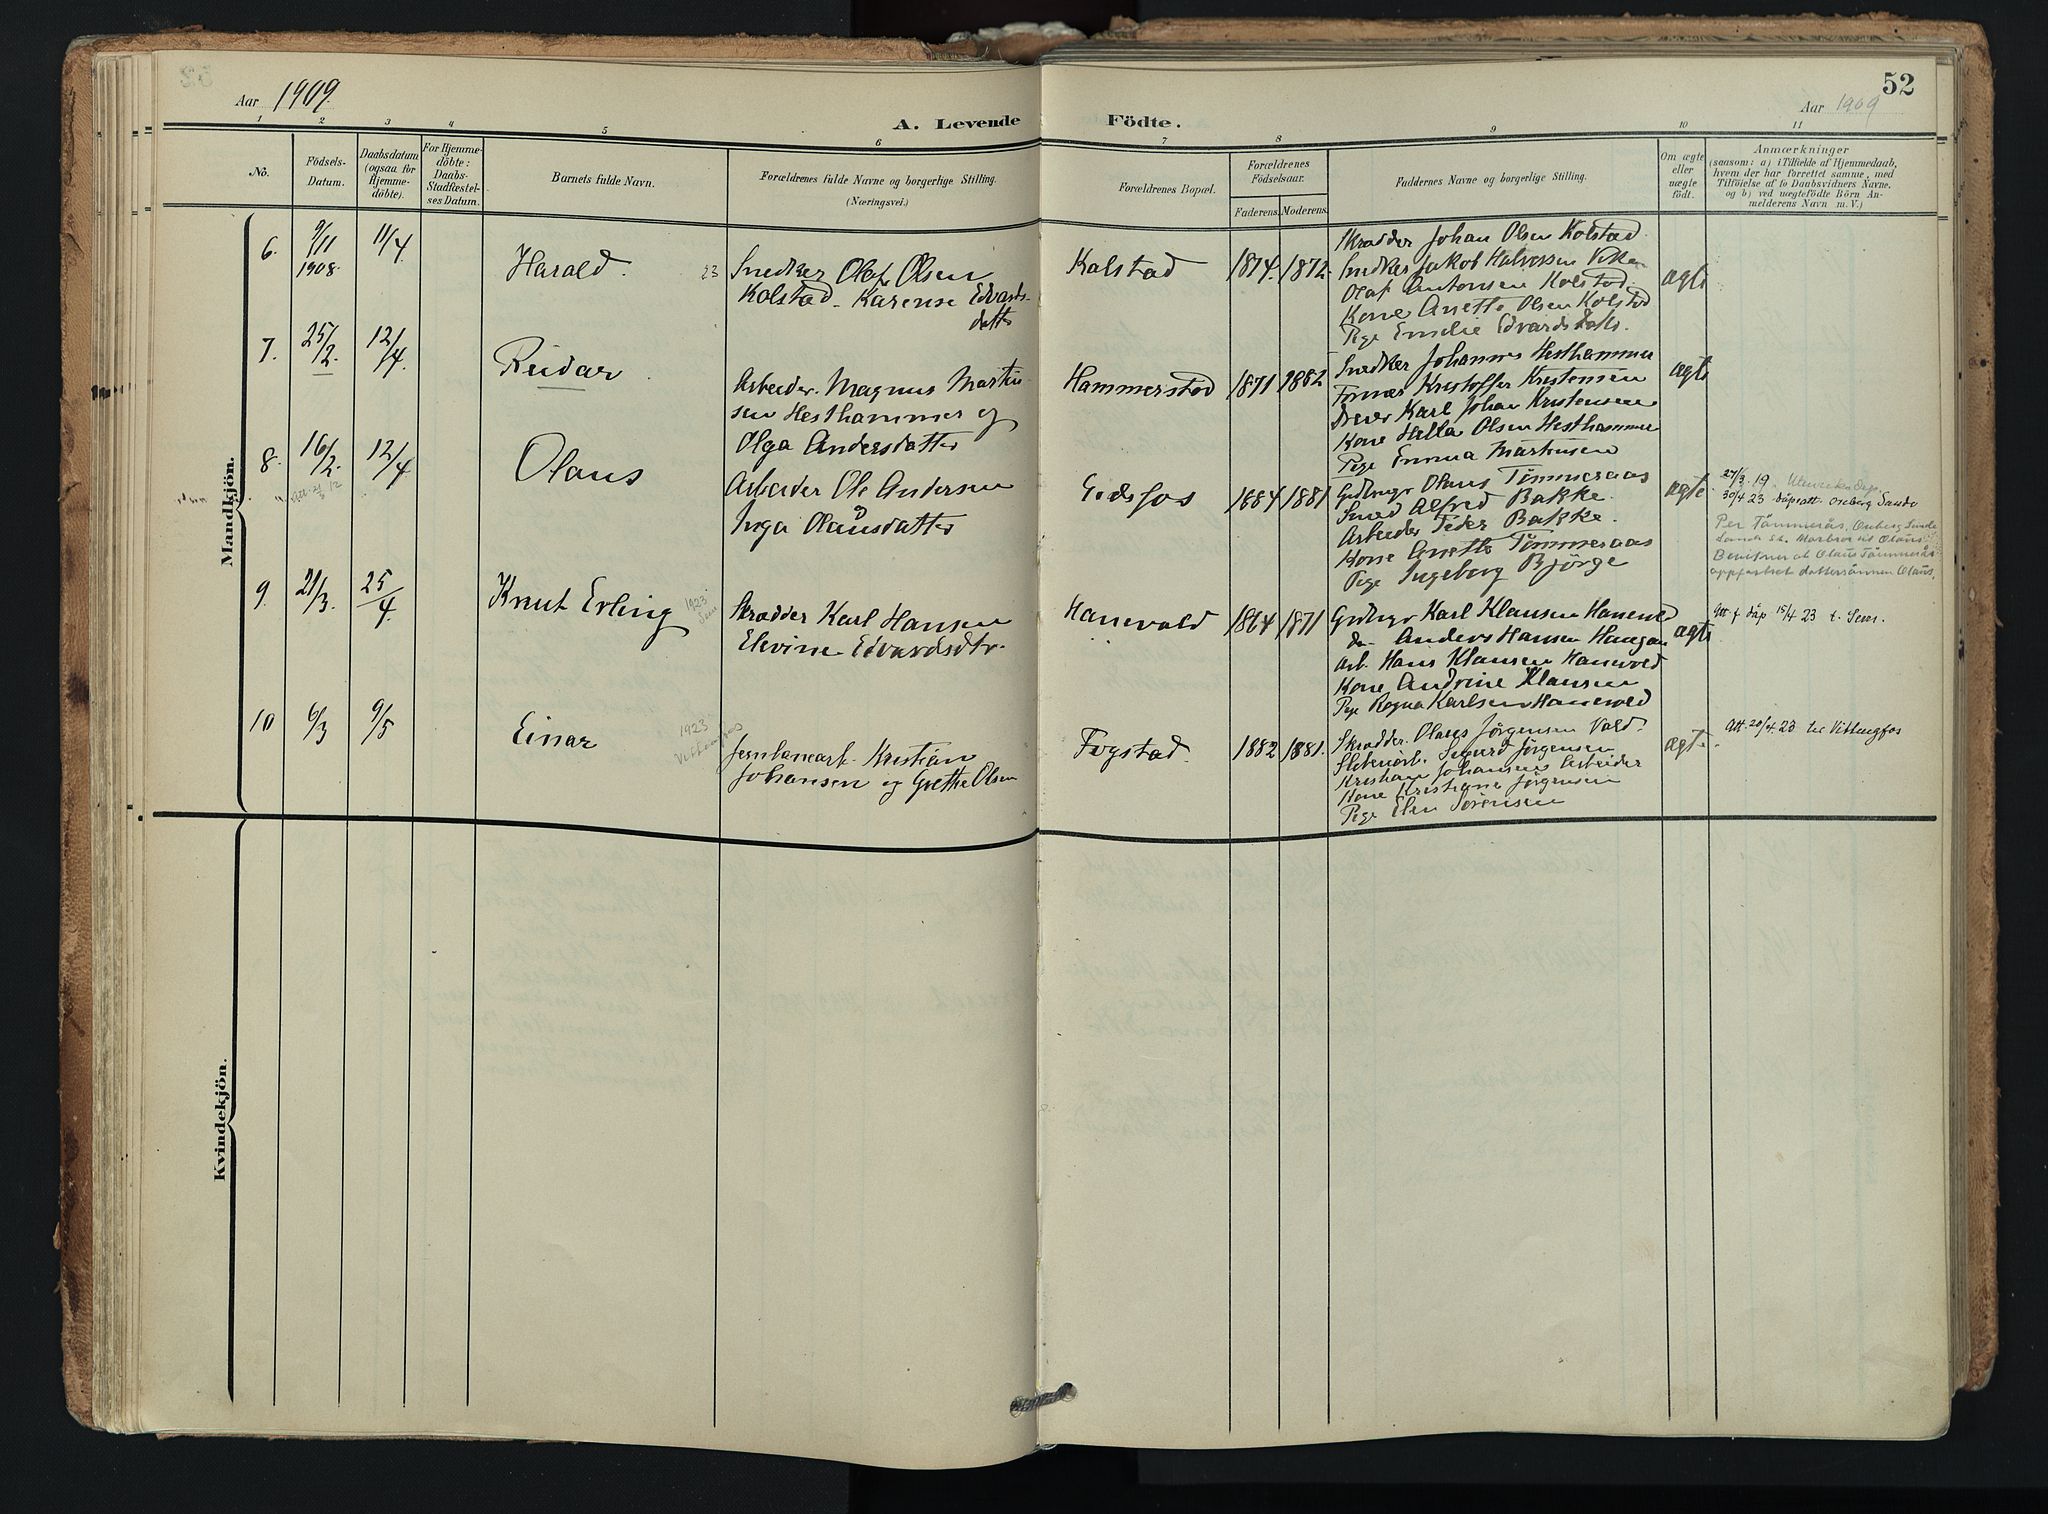 52
Aar 1909.
Aar 1909
A. Levende Födte.
1 2 3 4 5 6 7 8 9 10 11
No.
Födsels-
Datum.
Daabsdatum
(ogsaa for
Hjemme-
döbte).
For Hjemme-
döbte:
Daabs-
Stadfæstel-
ses Datum.
Barnets fulde Navn.
Forældrenes fulde Navne og borgerlige Stilling.
(Næringsvei.)
Forældrenes Bopæl.
Forældrenes
Födselsaar.
Faderens. Moderens.
Faddernes Navne og borgerlige Stilling.
Om ægte
eller
uægte
födt.
Anmærkninger
(saasom: a) i Tilfælde af Hjemmedaab,
hvem der har forrettet samme, med
Tilföielse af to Daabsvidners Navne,
og b) ved uægtefödte Börn An-
melderens Navn m. V.)
Mandkjön.
6. 9/11 1908. 11/4 Harald. 23
Snedker Olaf Olsen
Kolstad. Karense Edvards-
datter
Kolstad 1874. 1872.
Skradder Johan Olsen Kolstad
Snedker Jakob Halvorsen
Olaf Antonsen Kolstad
Kone Anette Olsen Kolstad
Pige Emilie Edvardsdatter.
agte
7. 25/2. 12/4. Reidar.
Arbeider. Magnus Martin-
sen Hesthammer og
Olga Andersdatter
Hammerstad 1871 1882
Snedker Johannes Hesthammer
Kristoffer Kristensen
Karl Johan Kristensen
Kone Olsen Hesthammer
Pige Emma Martinsen
agte
8. 16/2. 12/4 Olaus
Arbeider Ole Andersen
Inga Olausdatter
Godsfos 1884 1881.
Olaus Tömmeraas
Smed Alfred Bakke.
Arbeider Peder Bakke.
Kone Anette Tömmeraas
Pige Ingeborg Björge
agte
27/3. 19.
30/4 23 dåpsatt Oseberg Sande
Per Tömmerås, Oseberg Sande
til Olaus
at Olaus Tömmerås
oppfostret dattersönnen Olaus.
9. 21/3. 25/4. Knut Erling 1923
Skradder Karl Hansen
Elevine Edvardsdtr.
Hanevold 1864 1871
Karl Klausen Hanevold
do Anders Hansen Haugan
Arb. Hans Klausen Hanevold
Kone Andrine Klausen
Pige Ragna Karlsen Hanevold
agte
Att. f. dåp 15/4 23 t. Sem.
10 6/3 9/5 Einar 1923
Vittingfos
Jernbanearb. Kristian
Johansen og Grethe Olsen
Fogstad. 1882 1881.
Skradder. Olaus Jörgensen Vold.
Sliberiarb. Sigurd Jörgensen
Kristian Johansen Arbeider
Kone Kristiane Jörgensen
Pige Elen Sörensen
agte.
Att. 20/4 23 til Vittingfos
Kvindekjön.